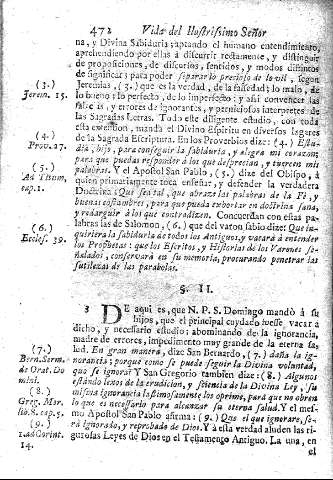 472 Vida del Ilustrissimo Señor
na, y Divina Sabiduria; aptando el humano entendimiento,
aprehendiendo por ellas à discurrir rectamente, y distinguir
de proposiciones, de discursos, sentidos, y modos distintos
de significar; para poder separar lo precioso de lo vil, segun
(3.) Jeremias, (3.) que es la verdad, de la falsedad; lo malo, de
Jerem. 15. lo bueno; lo perfecto, de lo imperfecto; y assi convencer las
y errores de ignorantes, y perniciosos interpretes de
las Sagradas Letras. Todo este diligente estudio, con toda
esta extension, manda el Divino Espiritu en diversos lugares
(4.) de la Sagrada Escriptura. En los Proverbios dize: (4.) Estu-
Prov. 27. dia, hijo, para conseguir la sabiduria, y alegra mi corazon,
para que puedas responder à los que desprecian, y tuercen mis
(5.) palabras. Y el Apostol San Pablo, (5.) dize del Obispo, à
Ad Thim. quien primariamente toca enseñar, y defender la verdadera
cap. 1. Doctrina: Que sea tal, que abraze las palabras de la Fè, y
buenas costumbres, para que pueda exhortar en doctrina sana,
y redarguir à los que contradicen. Concuerdan con estas pa-
(6.) labras las de Salomon, (6.) que del varon sabio dize: Que in-
Eccles. 39. quirirà la sabiduria de todos los Antiguos, y vacarà à entender
los Prophetas: que los Escritos, y Historias de los Varones se-
ñalados, conservarà en su memoria, procurando penetrar las
sutilezas de las parabolas.
§. II.
3 DE aqui es, que N. P. S. Domingo mandò à su
hijos, que el principal cuydado fuesse, vacar à
dicho, y necessario estudio: abominando de la ignorancia,
madre de errores, impedimento muy grande de la eterna sa-
(7.) lud. En gran manera, dize San Bernardo, (7.) daña la ig-
Bern. Serm. norancia; porque como se puede seguir la Divina voluntad,
de Orat. Do que se ignora? Y San Gregorio tambien dize: (8.) Algunos
mini. estando lexos de la erudicion, y sciencia de la Divina Ley, su
(8.) misma ignorancia lastimosamente los oprime, para que no obren
Greg. Mor. lo que es necessario para alcanzar su eterna salud. Y el mes-
lib. 8. cap. 5. mo Apostol San Pablo afirma: (9.) Que el que ignorare, se-
(9.) rà ignorado, y reprobado de Dios. Y à esta verdad aluden las ri-
1. ad Corint. gurosas Leyes de Dios en el Testamento Antiguo. La una, en
14. el